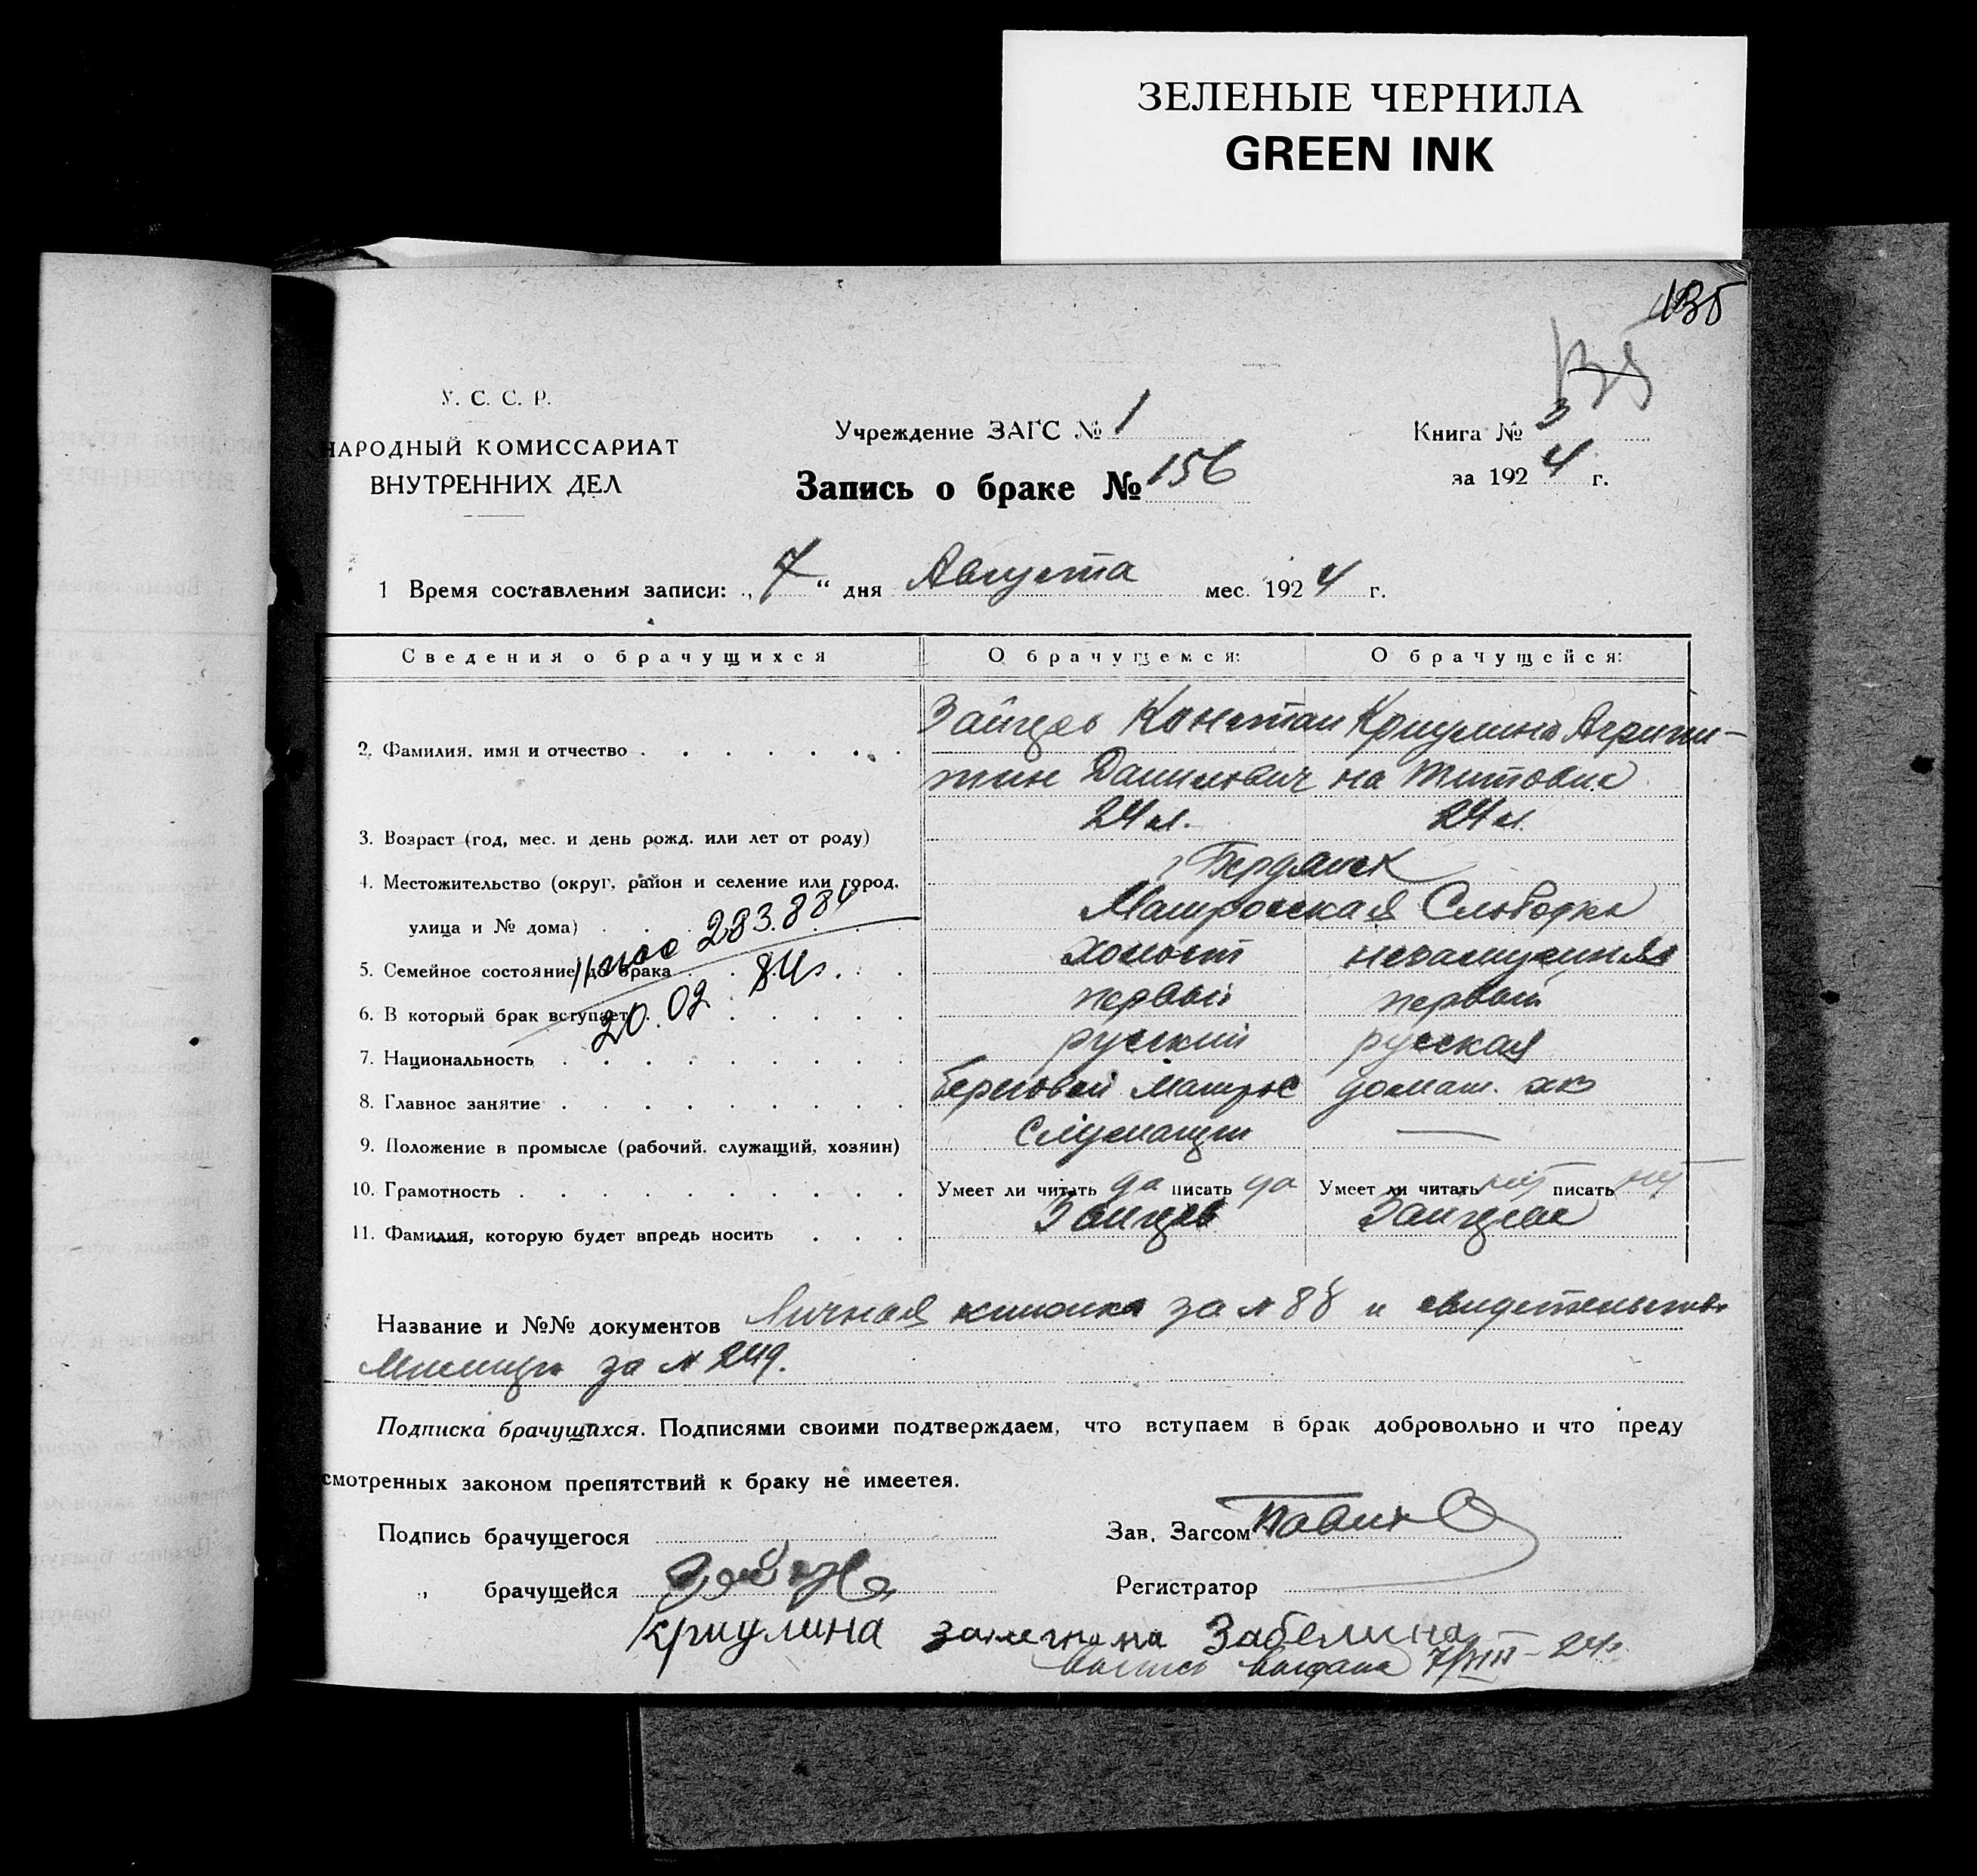 ЗЕЛЕНЫЕ ЧЕРНИЛА
GREEN INK
135
135
У. С. С. Р.
НАРОДНЫЙ КОМИССАРИАТ
ВНУТРЕННИХ ДЕЛ
Учреждение ЗАГС № 1
Запись о браке № 156
Книга № 3
за 1924 г.
1 Время составления записи: „7“ дня Августа мес. 1924 г.
Сведения о брачущихся
О брачущемся:
О брачущейся:
2. Фамилия, имя и отчество
Зайцев Констан
тин Данилович
Криулина Агрипи-
на Титовна
3. Возраст (год, мес. и день рожд. или лет от роду)
24 л.
24 л.
4. Местожительство (округ, район и селение или город,
г Бердянск
улица и № дома)
Матросская Слободка
283.884
20.02.84г.
5. Семейное состояние до брака
холост
незамужняя
6. В который брак вступает
первый
первый
7. Национальность
русский
русская
8. Главное занятие
береговой матрос
домаш. хоз
9. Положение в промысле (рабочий, служащий, хозяин)
Служащий
—
10. Грамотность
Умеет ли читать да писать да
Умеет ли читать нет писать нет
11. Фамилия, которую будет впредь носить
Зайцев
Зайцева
Название и №№ документов Личная книжка за № 88 и свидетельство
Милиции за № 249.
Подписка брачущихся. Подписями своими подтверждаем, что вступаем в брак добровольно и что преду
смотренных законом препятствий к браку не имеетея.
Подпись брачущегося
Зав. Загсом
„ брачущейся
Регистратор
Криулина Забелина
выдана 7/VIII-24г.